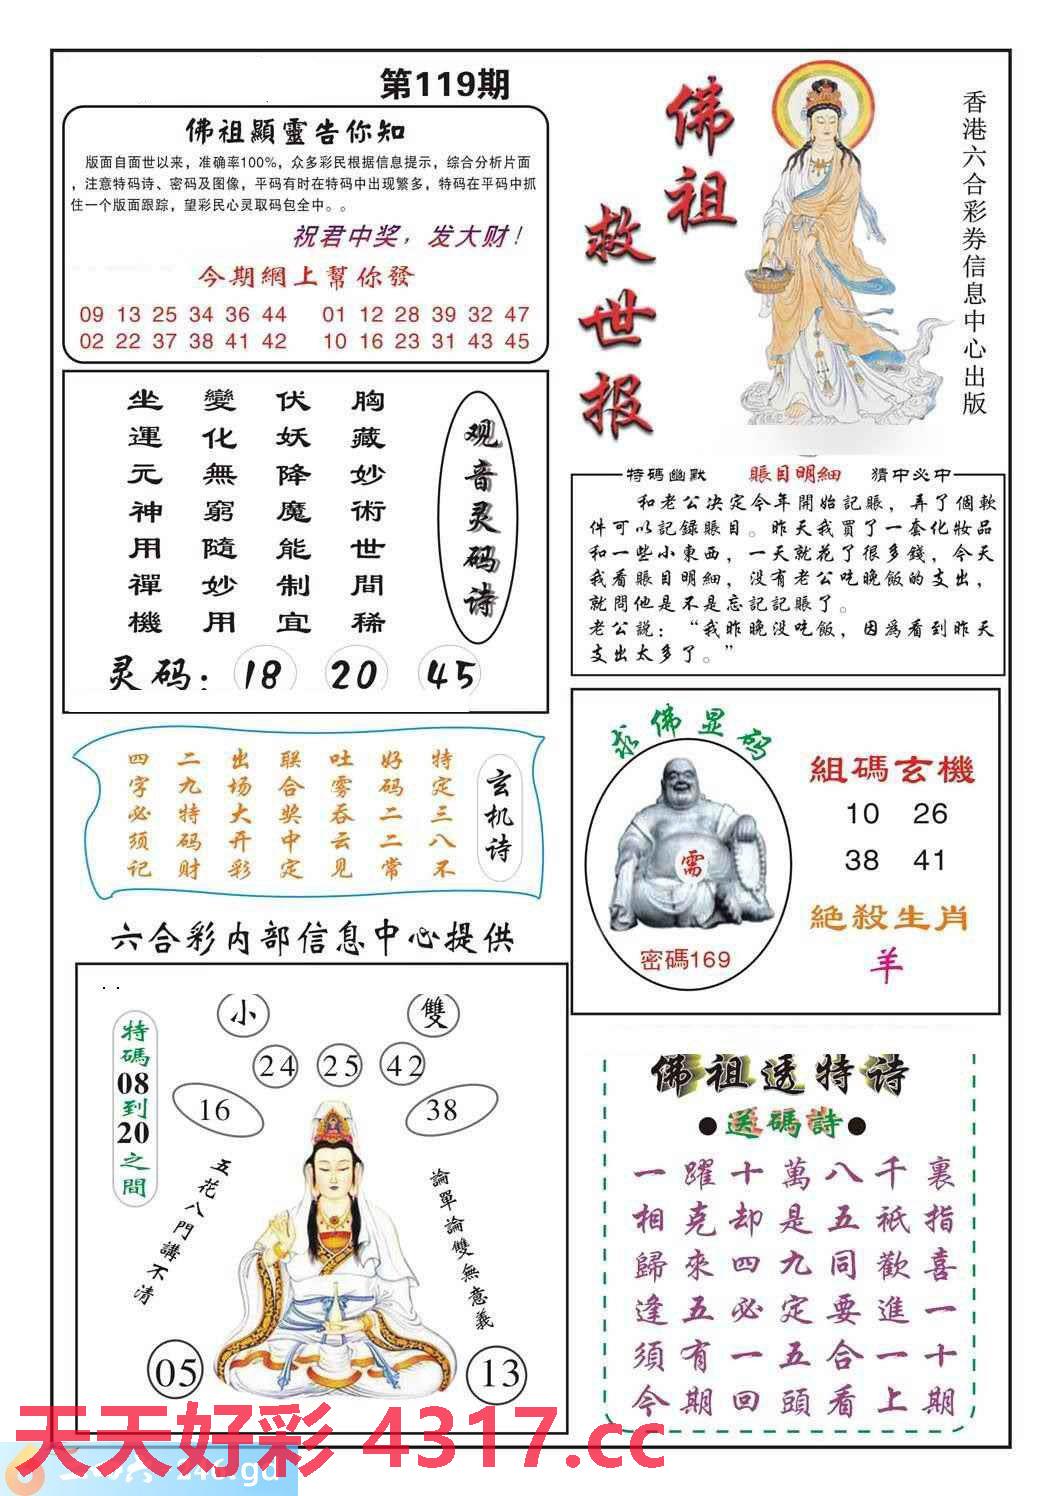 第119期
佛祖顯靈告你知
版面自面世以来，准确率100%，众多彩民根据信息提示，综合分析片面
，注意特码诗、密码及图像，平码有时在特码中出现繁多，特码在平码中抓
住一个版面跟踪，望彩民心灵取码包全中。。
祝君中奖，发大财!
今期網上幫你發
09 13 25 34 36 44 01 12 28 39 32 47
02 22 37 38 41 42 10 16 23 31 43 45
佛祖
救世报
香港六合彩券信息中心出版
观音灵码诗
胸藏妙術世間稀
伏妖降魔能制宜
變化無窮隨妙用
坐運元神用禪機
灵码：18 20 45
特碼幽默 賬目明細 猜中必中
和老公决定今年開始記賬，弄了個軟
件可以記録賬目。昨天我買了一套化妝品
和一些小東西，一天就花了很多錢，今天
我看賬目明細，没有老公吃晚飯的支出，
就問他是不是忘記記賬了。
老公説：“我昨晚没吃飯，因爲看到昨天
支出太多了。”
玄机诗
特定三八不
好码二二常
吐雾吞云见
联合奖中定
出场大开彩
二九特码财
四字必须记
求佛显码
需
密碼169
組碼玄機
10 26
38 41
絶殺生肖
羊
六合彩内部信息中心提供
小 雙
24 25 42
16 38
特碼08到20之間
五花八門講不清
論單論雙無意義
05 13
佛祖透特诗
●送碼詩●
一躍十萬八千裏
相克却是五祇指
歸來四九同歡喜
逢五必定要進一
須有一五合一十
今期回頭看上期
天天好彩 4317.cc
246.gd